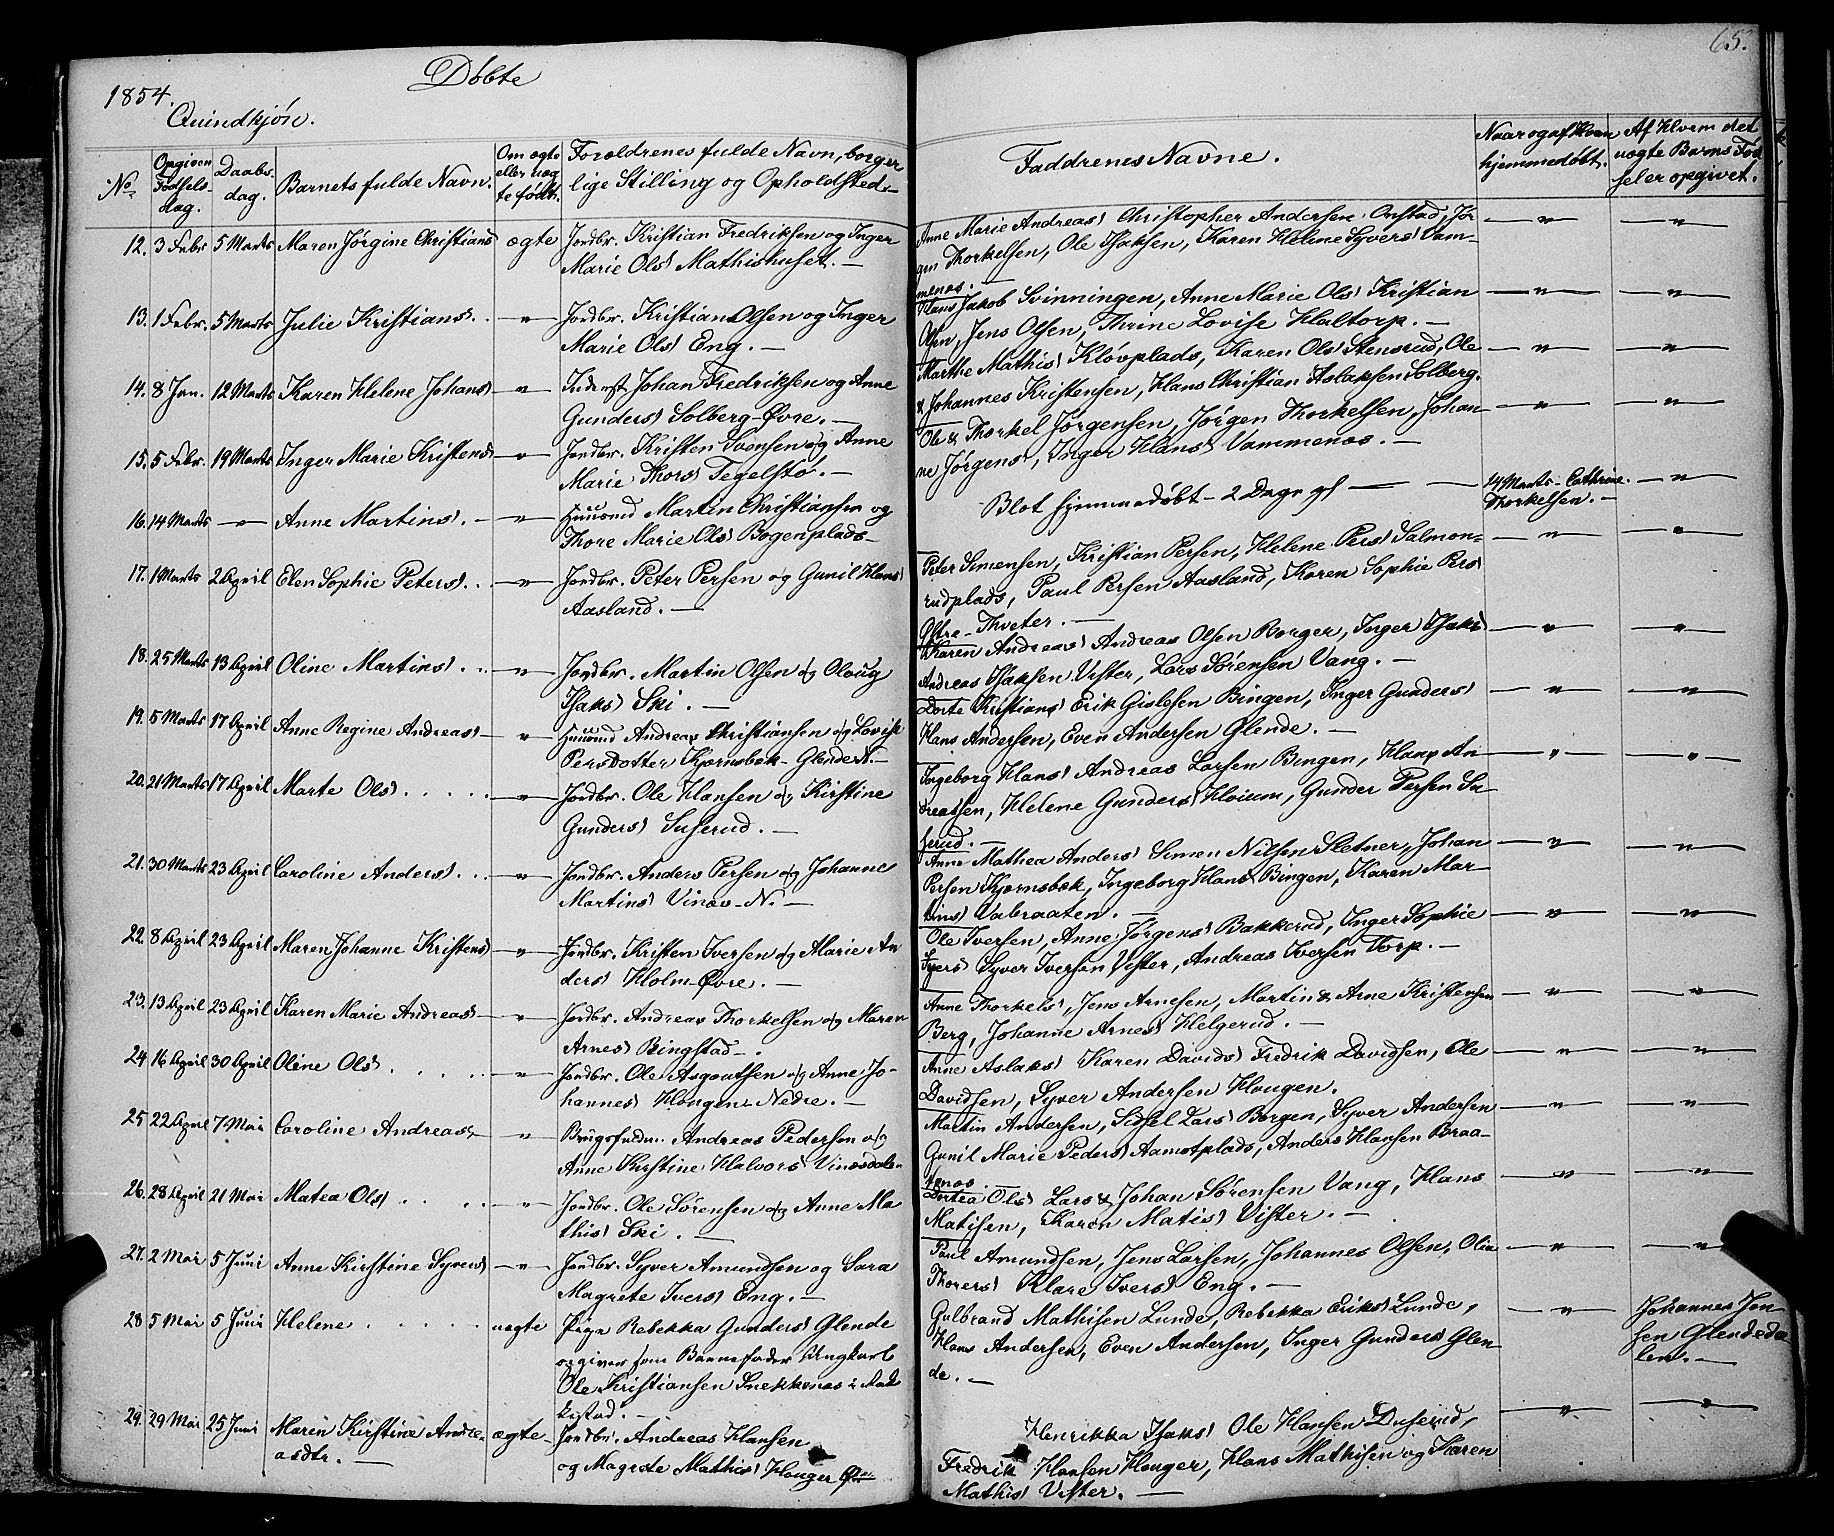 65.
1854.
Døbte
Quindkjøn.
No
Opgiven Fødsels-dag.
Daabs-dag.
Barnets fulde Navn.
Om ægte eller uægte født.
Forældrenes fulde Navn, borgerlige Stilling og Opholdsted.
Faddrenes Navne.
Naar og af Hvem hjemmedøbt.
Af Hvem det uægte Barns Fødsel er opgivet.
12. 3 Febr 5 Marts Maren Jørgine Christians ægte Jordbr. Kristian Fredriksen og Inger
Marie Ols Mathishuset. —
Anne Marie Andreas Christopher Andersen Onstad, Jør
gen Thorkelsen, Ole Isaksen, Karen Helene Syvers Vam-
menæs. —
13. 1 Febr. 5 Marts Julie Kristians. — " — Jordbr. Kristian Olsen og Inger
Marie Ols Eng. —
Hans Jakob Svinningen, Anne Marie Ols Kristian
Olsen, Jens Olsen, Thrine Lovise Haltorp. —
14. 8 Jan. 12 Marts Karen Helene Johans — " — Inderst Johan Fredriksen og Anne
Gunders Solberg-Øvre. —
Marthe Mathis Kløvplads, Karen Ols Stensrud, Ole
& Johannes Kristensen, Hans Christian Aslaksen Solberg.
15. 5 Febr. 19 Marts Inger Marie Kristens — " — Jordbr. Kristen Svensen og Anne
Marie Thors Tegelstø. —
Ole & Thorkel Jørgensen, Jørgen Thorkelsen, Johan-
ne Jørgens, Inger Hans Vammenæs. —
16. 14 Marts — " — Anne Martins. — " — Huusmd Martin Christiansen og
Thore Marie Ols Bøgenplads —
Blot hjemmedøbt - 2 Dage gl — —
14 Marts - Cathrine
Thorkelsen. —
17. 1 Marts 2 April Elen Sophie Peters. . — " — Jordbr. Peter Persen og Gunil Hans
Aasland. —
Peter Simensen, Kristian Persen, Helene Pers Salmon-
rudplads, Paul Persen Aasland, Karen Sophie Pers
Østre-Thveter. —
18. 25 Marts 13 April Oline Martins. . . — " — Jordbr. Martin Olsen og Oloug
Isaks Ski. —
Karen Andreas Andreas Olsen Borger, Inger Isaks
Andreas Isaksen Vister, Lars Sørensen Vang. —
19. 5 Marts 17 April Anne Regine Andreas — " — Huusmd Andreas Christiansen og Lovise
Persdotter Kjørnsbæk - Glende N. —
Dorte Kristians Erik Gislesen Bingen, Inger Gunders
Hans Andersen, Even Andersen Glende. —
20. 21 Marts 17 April Marte Ols . . . . . — " — Jordbr. Ole Hansen og Kirstine
Gunders Suserud. —
Ingeborg Hans Andreas Larsen Bingen, Hans An
dreassen, Helene Gunders Hvium, Gunder Persen Su-
serud. —
21. 30 Marts 23 April Caroline Anders. . . — " — Jordbr. Anders Persen og Johanne
Martins Vinæs - N. —
Anne Mathea Anders Simen Nilsen Sletner, Johan
Persen Kjørnsbæk, Ingeborg Hans Bingen, Karen Mar-
tins Vabraaten. —
22. 8 April 23 April Maren Johanne Kristens — " — Jordbr. Kristen Iversen og Marie An
ders Holm-Øvre. —
Ole Iversen, Anne Jørgens Bakkerud, Inger Sophie
Syvers Syver Iversen Vister, Andreas Iversen Torp. —
23. 13 April 23 April Karen Marie Andreas — " — Jordbr. Andreas Thorkelsen og Maren
Arnes Bingstad — .
Anne Thorkels, Jens Arnesen, Martin & Arne Kristensen
Berg, Johanne Arnes Helgerud. —
24 16 April 30 April Oline Ols . . . . . — " — Jordbr. Ole Asgoutsen og Anne Jo-
hannes Hougen-Nedre. —
Anne Aslaks Karen Davids Fredrik Davidsen, Ole
Davidsen, Syver Andersen Hougen.
25 22 April 7 Mai Caroline Andreas — " — Brugsfuldm. Andreas Pedersen og
Anne Kirstine Halvors Vinæsdalen
Martin Andersen, Sidsel Lars Borgen, Syver Andersen
Gunil Marie Peders Aamotplads, Anders Hansen Braa-
tenæs.
26. 28 April 21 Mai Matea Ols . . . . — " — Jordbr. Ole Sørensen og Anne Ma
this Ski. —
Dortea Ols Lars & Johan Sørensen Vang, Hans
Matisen, Karen Matis Vister. —
27. 2 Mai 5 Juni Anne Kirstine Syvers — " — Jordbr. Syver Amundsen og Sara
Magrete Ivers Eng. —
Paul Amundsen, Jens Larsen, Johannes Olsen, Olia
Thorers Klare Ivers Eng. —
28 5 Mai 5 Juni Helene . . . . . uægte Pige Rebekka Gunders Glende
opgiver som Barnefader Ungkarl
Ole Kristiansen Snekkenæs i Rak
kestad. —
Gulbrand Mathisen Lunde, Rebekka Eriks Lunde,
Hans Andersen, Even Andersen, Inger Gunders Glen-
de. —
Johannes Jen-
sen Glendeda
len. —
29. 29 Mai 25 Juni Maren Kirstine Andre-
asdtr. — ægte Jordbr. Andreas Hansen
og Magrete Mathis Houger Østre
Henrikka Isaks Ole Hansen Duserud,
Fredrik Hansen Houger, Hans Mathisen og Karen
Mathis Vister. —